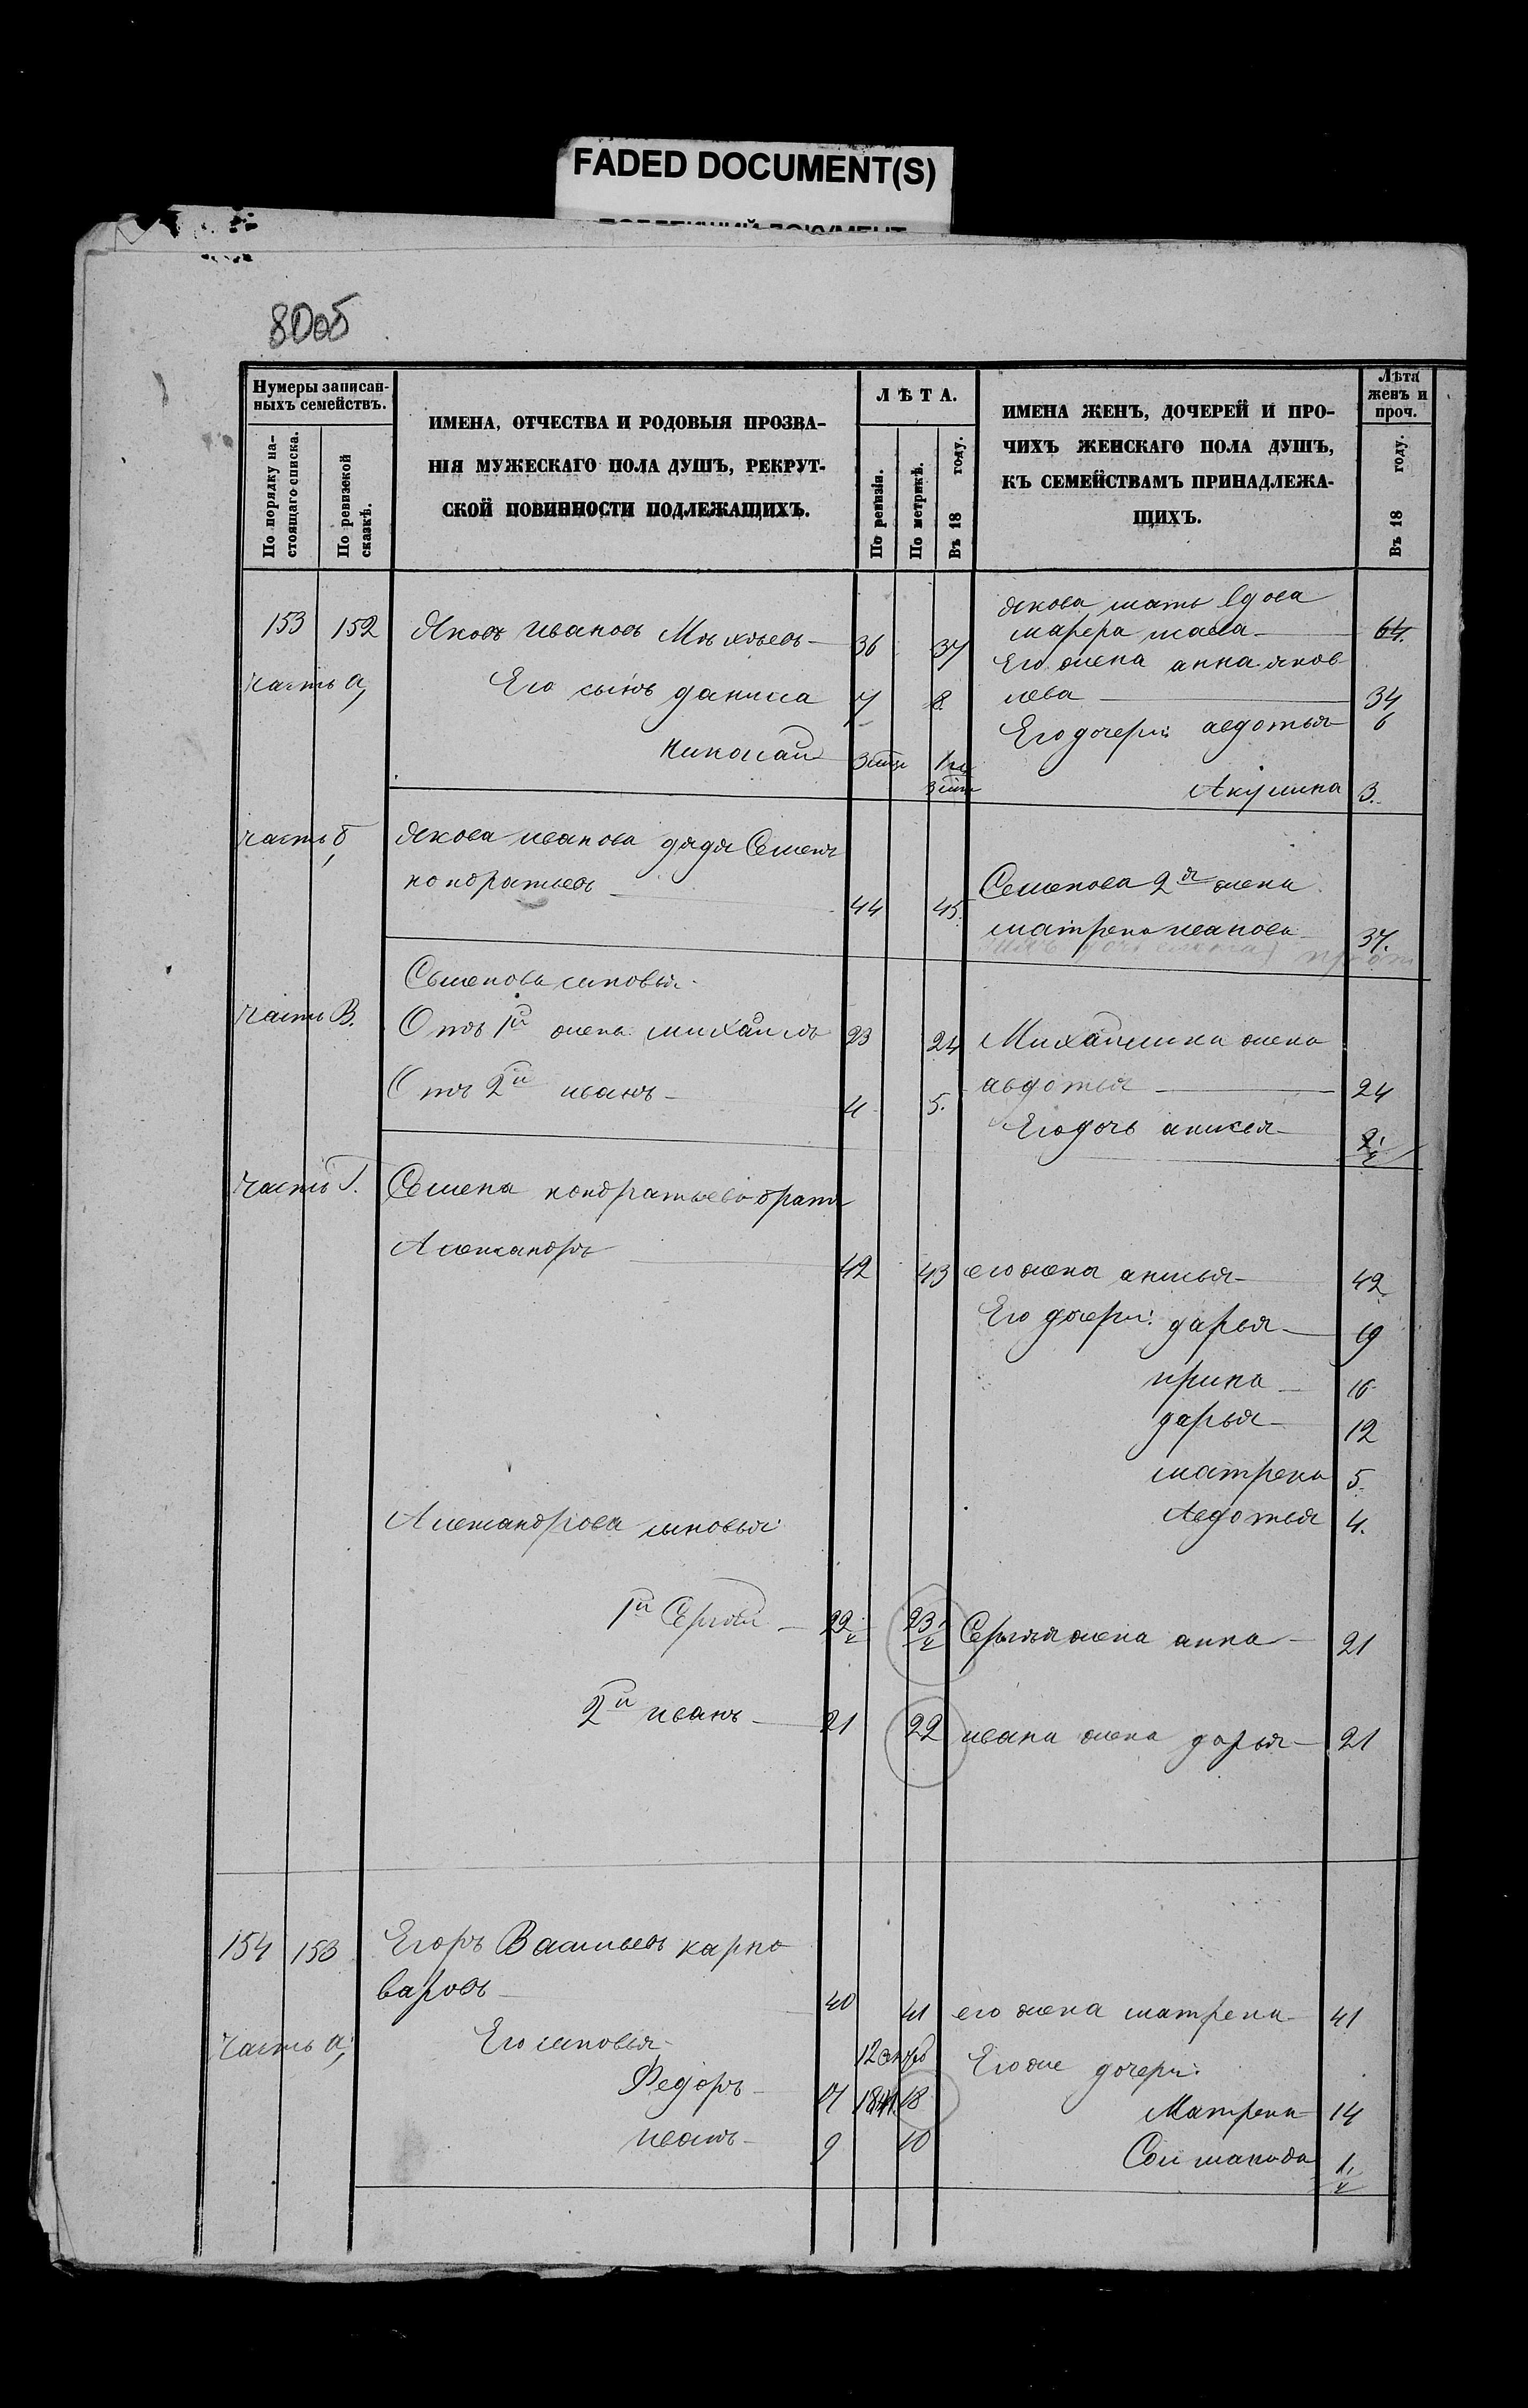 FADED DOCUMENT(S)
80об
Нумеры записан-
ныхъ семействъ.
По порядку на-
стоящаго списка.
По ревизской
сказкѣ.
ИМЕНА, ОТЧЕСТВА И РОДОВЫЯ ПРОЗВА-
НІЯ МУЖЕСКАГО ПОЛА ДУШЪ, РЕКРУТ-
СКОЙ ПОВИННОСТИ ПОДЛЕЖАЩИХЪ.
ЛѢТА.
По ревизіи.
По метрикѣ.
Въ 18 году.
ИМЕНА ЖЕНЪ, ДОЧЕРЕЙ И ПРО-
ЧИХЪ ЖЕНСКАГО ПОЛА ДУШЪ,
КЪ СЕМЕЙСТВАМЪ ПРИНАДЛЕЖА-
ЩИХЪ.
Лѣта
женъ и
проч.
Въ 18 году.
Якова мать вдова
153 152 Яковъ Ивановъ 36 37 64
Его жена анна яков
часть а, Его сынъ данила 7 8 лева 34
Его дочери: авдотья 6
Николай
Акулина 3.
часть б, Якова иванова дядя Семенъ
кондратьевъ 44 45. Семенова 2я жена
матрена иванова 37.
Семенова сыновья
часть В. Отъ 1й жены михайлъ 23 24 Михайлина жена
Отъ 2й иванъ 4 5. авдотья 24
Его дочь анисья
часть Г. Семена кондратьева братъ
Александръ 42 43 его жена анисья 42
Его дочери: дарья 19
ирина 16
дарья 12
матрена 5
Авдотья 4.
Александрова сыновья
1й Сергѣй 22 23 Сергѣя жена анна 21
2й иванъ 21 22 ивана жена дарья 21
154 153 Егоръ Васильевъ карно
варовъ 40 41 его жена матрена 41
часть а, Его сыновья Его же дочери:
Федоръ 17 1841 18 Матрена 14
иванъ 9 10